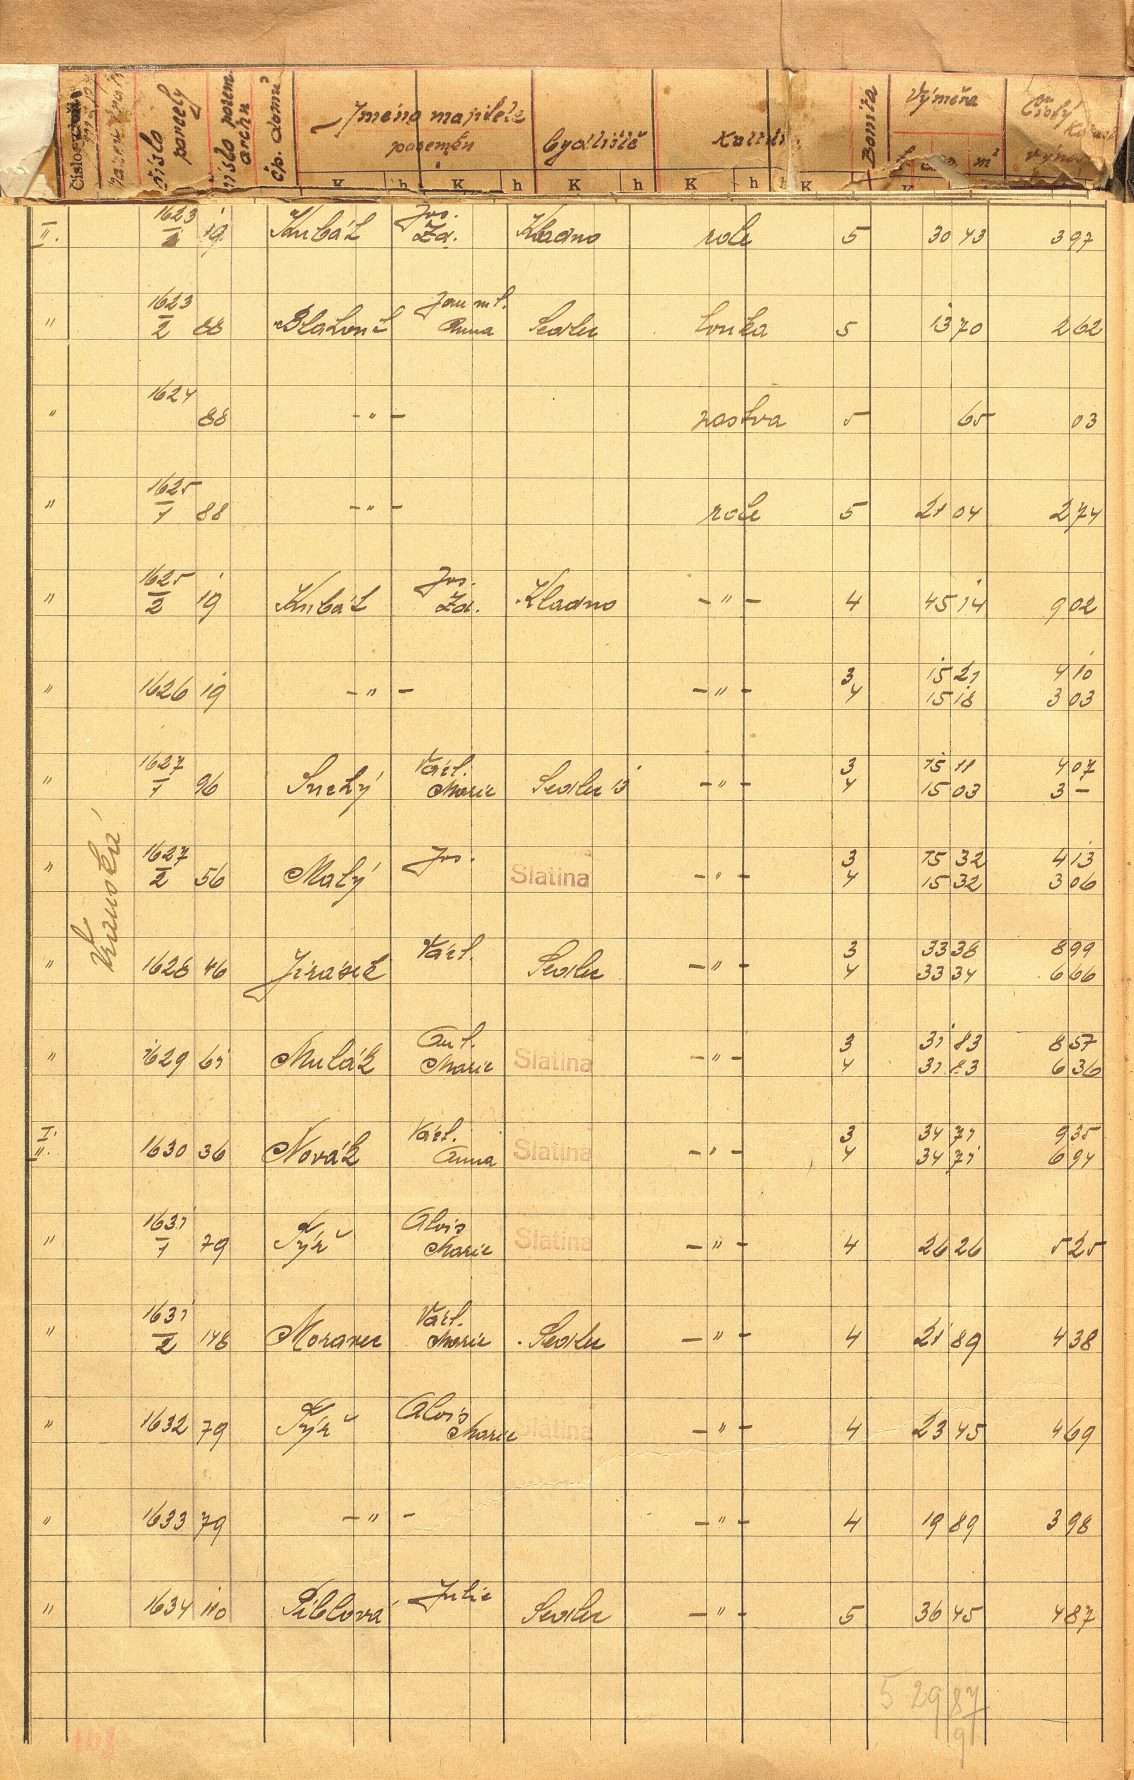 číslo parcely
číslo pozem. archu
čp. domu
Jméno majitele pozemku
Bydliště
Kultura
Bonita
Výměra
Čistý
výnos
K h K h K h K h h K
II. 1623/1 19 Kubát Jos. Zd. Kladno role 5 30 43 3 97
" 1623/2 88 Jan ml. Anna Sedlec louka 5 13 70 2 62
" 1624 88 -"- pastva 5 65 03
" 1625/1 88 -"- role 5 21 04 2 74
" 1625/2 19 Kubát Jos. Zd. Kladno -"- 4 45 14 9 02
" 1626 19 -"- -"- 3 15 21 4 10
4 15 18 3 03
" 1627/1 96 Suchý Václ. Marie Sedlec 13 -"- 3 15 11 4 07
4 15 03 3 -
" 1627/2 56 Malý Jos. Slatina -"- 3 15 32 4 13
4 15 32 3 06
" 1628 46 Jirásek Václ. Sedlec -"- 3 33 38 8 99
4 33 34 6 66
" 1629 61 Mulák Ant. Marie Slatina -"- 3 31 83 8 57
4 31 83 6 36
I. II. 1630 36 Novák Václ. Anna Slatina -"- 3 34 71 9 35
4 34 71 6 94
" 1631/1 79 Týř Alois Marie Slatina -"- 4 26 26 5 25
" 1631/2 148 Moravec Václ. Marie Sedlec -"- 4 21 89 4 38
" 1632 79 Týř Alois Marie Slatina -"- 4 23 45 4 69
" 1633 79 -"- -"- 4 19 89 3 98
" 1634 110 Julie Sedlec -"- 5 36 45 4 87
5 29 87
97